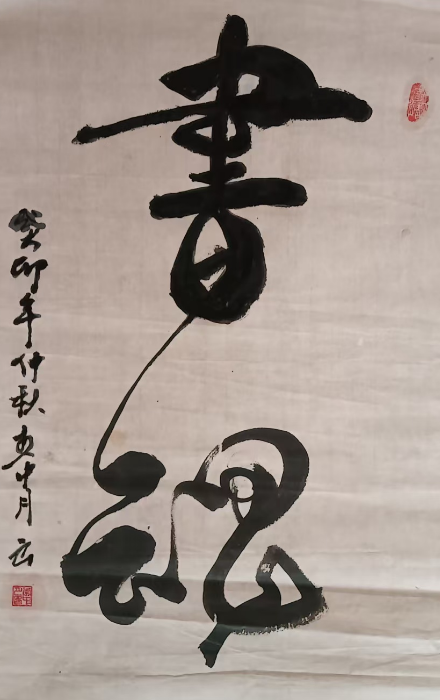 書魂
癸卯年仲秋